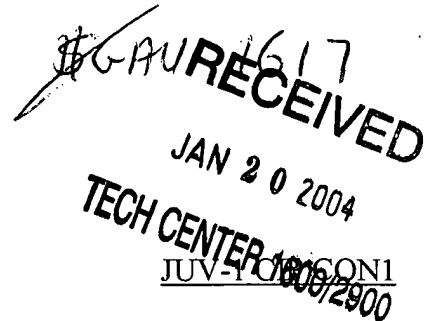 GAU 1617
RECEIVED
JAN 20 2004
TECH CENTER 1600/2900
JUV-1 CON1